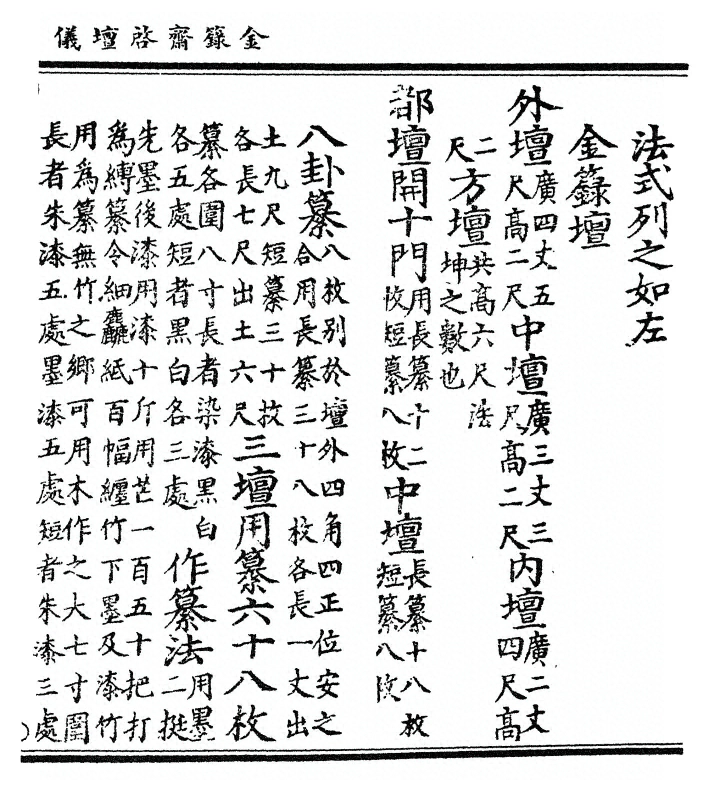 金籙齋啓壇儀
法式列之如左
金籙壇
外壇廣四丈五尺高二尺中壇廣三丈三尺高二尺內壇廣二丈四尺高
二尺方壇共高六尺法坤之數也
都壇開十門用長纂十二枚短纂八枚中壇長纂十八枚短纂八枚
八卦纂八枚別於壇外四角四正位安之合用長纂三十八枚各長一丈出
土九尺短纂三十枚各長七尺出土六尺三壇用纂六十八枚
纂各圍八寸長者染漆黑白各五處短者黑白各三處作纂法用墨二挺
先墨後漆用漆十斤用芒一百五十把打為縛纂令細麤紙百幅纏竹下墨及漆竹
用為纂無竹之鄉可用木作之大七寸圍長者朱漆五處墨漆五處短者朱漆三處